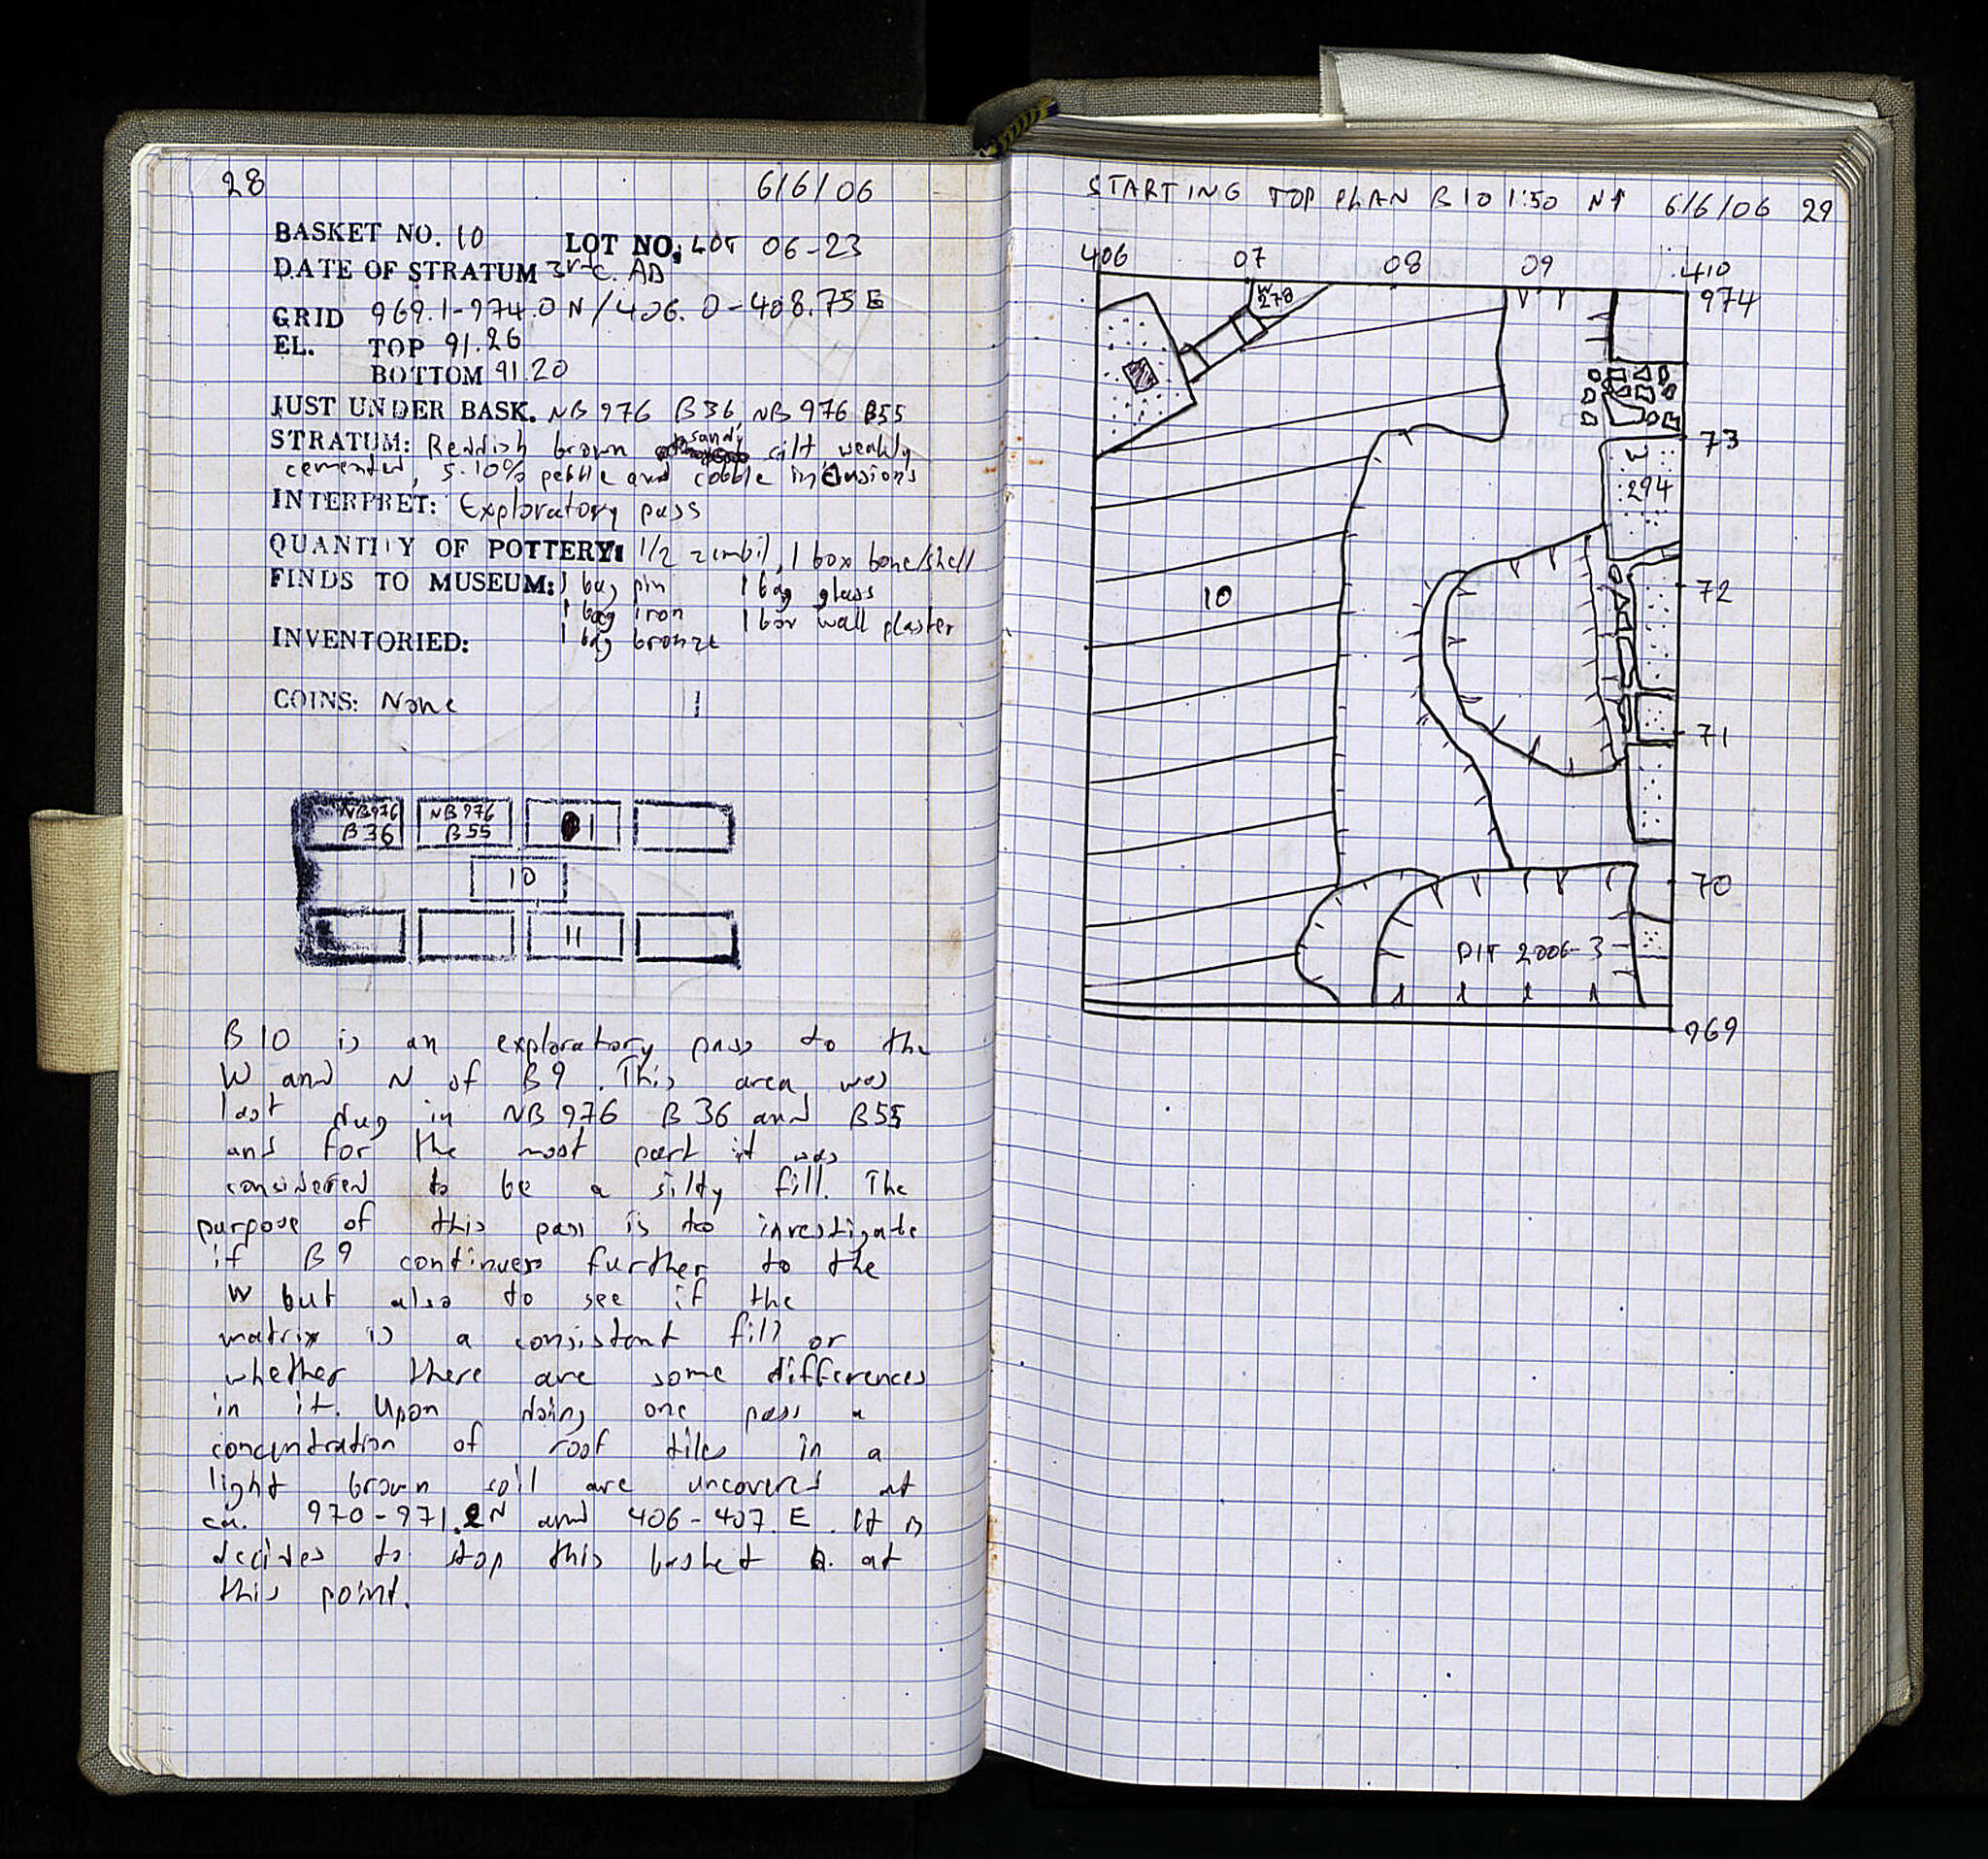 28 6/6/06
BASKET NO. 10 LOT NO. LOT 06-23
DATE OF STRATUM 3rd c. AD
GRID 969.1-974.0 N / 406.0-408.75 E
EL. TOP 91.26
BOTTOM 91.20
JUST UNDER BASK. NB 976 B36, NB 976 B55
STRATUM: Reddish brown sandy silt weakly
cemented, 5-10% pebble and cobble inclusions
INTERPRET: Exploratory pass
QUANTITY OF POTTERY: 1/2 zimbil, 1 box bone/shell
FINDS TO MUSEUM: 1 bag pin 1 bag glass
1 bag iron 1 box wall plaster
INVENTORIED: 1 bag bronze
COINS: None
NB976 B36
NB976 B55
1
10
11
B10 is an exploratory pass to the
W and N of B9. This area was
last dug in NB 976 B36 and B55
and for the most part it was
considered to be a silty fill. The
purpose of this pass is to investigate
if B9 continues further to the
W but also to see if the
matrix is a consistent fill or
whether there are some differences
in it. Upon doing one pass a
concentration of roof tiles in a
light brown soil are uncovered at
ca. 970-971.2N and 406-407. E. It is
decided to stop this basket at
this point.
STARTING TOP PLAN B10 1:50 N↑ 6/6/06 29
406 07 08 09 410
974
W 278
73
W 294
72
10
71
70
PIT 2006-3
969